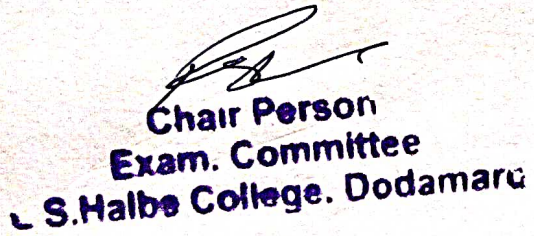 Chair Person
Exam. Committee
L S.Halbe College. Dodamarg